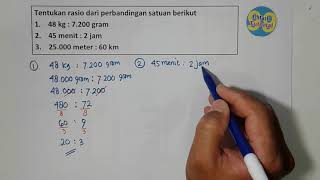 Tentukan rasio dari perbandingan satuan berikut
1. 48 kg : 7.200 gram
2. 45 menit : 2 jam
3. 25.000 meter : 60 km
① 48 kg : 7.200 gram
48.000 gram : 7.200 gram
48.000 : 7.200
480 : 72
8 8
60 : 9
3 3
20 : 3
② 45 menit : 2 jam